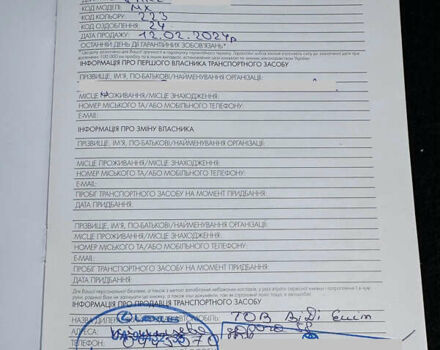 КОД МОДЕЛІ: MX
КОД КОЛЬОРУ: 223
КОД ОЗДОБЛЕННЯ: 24
ДАТА ПРОДАЖУ: 12.02.2024р
ОСТАННІЙ ДЕНЬ ДІЇ ГАРАНТІЙНИХ ЗОБОВ'ЯЗАНЬ*:
ІНФОРМАЦІЯ ПРО ПЕРШОГО ВЛАСНИКА ТРАНСПОРТНОГО ЗАСОБУ
ПРІЗВИЩЕ, ІМ'Я, ПО-БАТЬКОВІ/НАЙМЕНУВАННЯ ОРГАНІЗАЦІЇ:
МІСЦЕ ПРОЖИВАННЯ/МІСЦЕ ЗНАХОДЖЕННЯ:
НОМЕР МІСЬКОГО ТА/АБО МОБІЛЬНОГО ТЕЛЕФОНУ:
E-MAIL:
ІНФОРМАЦІЯ ПРО ЗМІНУ ВЛАСНИКА
ПРІЗВИЩЕ, ІМ'Я, ПО-БАТЬКОВІ/НАЙМЕНУВАННЯ ОРГАНІЗАЦІЇ:
МІСЦЕ ПРОЖИВАННЯ/МІСЦЕ ЗНАХОДЖЕННЯ:
НОМЕР МІСЬКОГО ТА/АБО МОБІЛЬНОГО ТЕЛЕФОНУ:
E-MAIL:
ПРОБІГ ТРАНСПОРТНОГО ЗАСОБУ НА МОМЕНТ ПРИДБАННЯ:
ДАТА ПРИДБАННЯ:
ПРІЗВИЩЕ, ІМ'Я, ПО-БАТЬКОВІ/НАЙМЕНУВАННЯ ОРГАНІЗАЦІЇ:
МІСЦЕ ПРОЖИВАННЯ/МІСЦЕ ЗНАХОДЖЕННЯ:
НОМЕР МІСЬКОГО ТА/АБО МОБІЛЬНОГО ТЕЛЕФОНУ:
E-MAIL:
ПРОБІГ ТРАНСПОРТНОГО ЗАСОБУ НА МОМЕНТ ПРИДБАННЯ:
ДАТА ПРИДБАННЯ:
ІНФОРМАЦІЯ ПРО ПРОДАВЦЯ ТРАНСПОРТНОГО ЗАСОБУ
НАЗВА ДИЛЕРА ТОВ
АДРЕСА:
ТЕЛЕФОН: